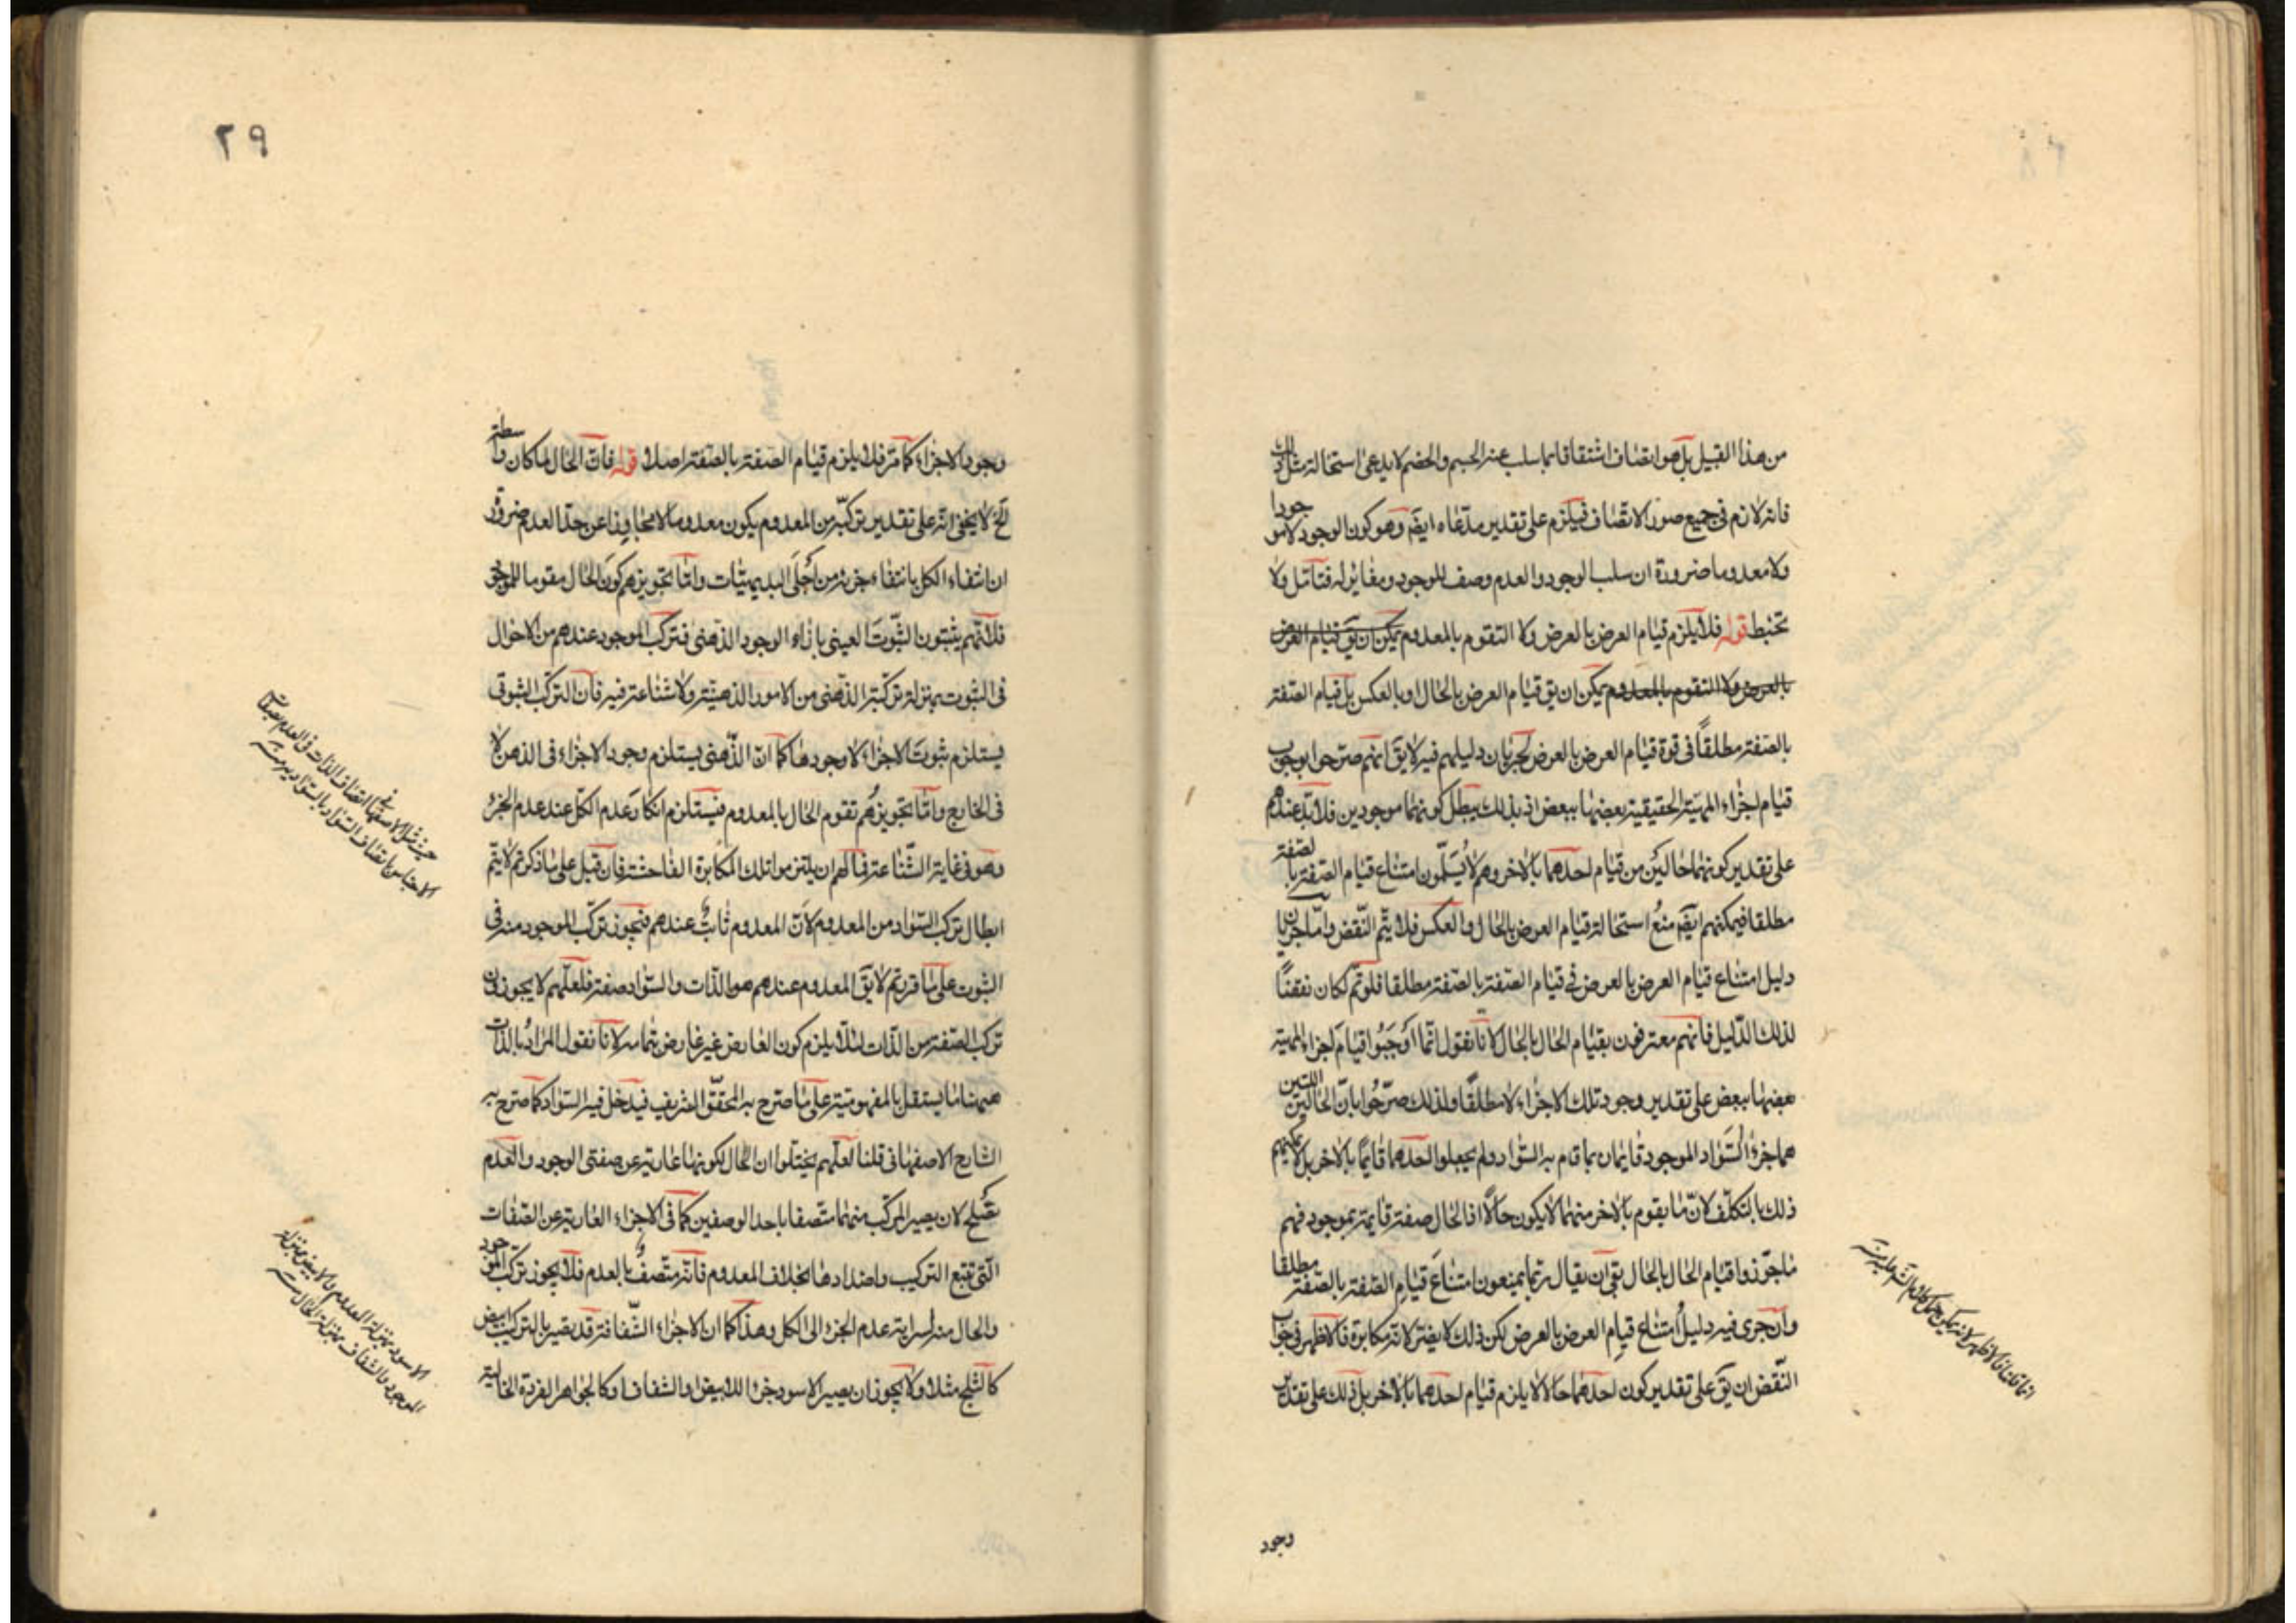 من هذا القبيل بل هو اتصاف اشتقاقا بما سلب عنه الجسم والخصم لا يدعى استحالة مثل ذلك
فانه لازم في جميع صور الاتصاف فيلزم على تقدير مدعاه ايضا وهو كون الوجود لا موجودا
ولا معدوما ضرورة ان سلب الوجود والعدم وصف للموجود ومغاير له فتامل ولا
تخبط قوله فلا يلزم قيام العرض بالعرض ولا التقوم بالمعدوم يمكن ان يق قيام العرض
بالعرض ولا التقوم بالمعدوم يمكن ان يق قيام العرض بالحال او بالعكس بل قيام الصفة
بالصفة مطلقاً في قوة قيام العرض بالعرض لجريان دليلهم فيه لا يق انهم صرحوا بوجوب
قيام اجزاء المهية الحقيقية بعضها ببعض اذ بذلك يبطل كونهما موجودين فلا بد عندهم
على تقدير كونهما حالين من قيام احدهما بالاخر وهم لا يسلّمون امتناع قيام الصفة بالصفة
مطلقا فيمكنهم ايضا منعُ استحالة قيام العرض بالحال والعكس فلا يتم النقض واما جريان
دليل امتناع قيام العرض بالعرض في قيام الصفة بالصفة مطلقا فلو تم لكان نقضاً
لذلك الدليل فانهم معترفون بقيام الحال بالحال لانا نقول انما اوجبوا قيام اجزاء المهية
بعضها ببعض على تقدير وجود تلك الاجزاء لا مطلقاً ولذلك صرّحوا بان الحالين اللتين
هما جزءا السواد الموجود قائمان بما قام به السواد ولم يجعلوا احدهما قائماً بالاخر بل لا يمكنهم
ذلك بالتكلف لانّ ما يقوم بالاخر منهما لا يكون حالاً اذ الحال صفة قائمة بموجود فهم
ما جوّزوا قيام الحال بالحال بقي ان يقال ربما يمنعون امتناع قيام الصفة بالصفة مطلقا
وان جرى فيه دليل امتناع قيام العرض بالعرض لكن ذلك لا يضر لانه مكابرة فالاظهر في جواب
النقض ان يق على تقدير كون احدهما حالا لا يلزم قيام احدهما بالاخر بل ذلك على تقدير
وجود
انما قلنا فالاظهر لانه يمكن حمل كلام الشم عليه منه
٢٩
وجود الاجزاء كما مر فلا يلزم قيام الصفة بالصفة اصلا قوله فان الحال لما كان واسطة
الخ لا يخفى انه على تقدير تركّبه من المعدوم يكون معدوما لا متجاوزا عن حد العدم ضرورة
ان انتفاء الكل بانتفاء جزئه من اجلى البديهيات وامّا تجويزهم كون الحال مقوما للموجود
فلانهم يثبتون الثبوت العينى بازاء الوجود الذهنى فتركب الموجود عندهم من الاحوال
فى الثبوت بمنزلة تركّبه الذهنى من الامور الذهنية ولا شناعة فيه فان التركب الثبوتى
يستلزم ثبوت الاجزاء لا وجودها كما ان الذهنى يستلزم وجود الاجزاء فى الذهن لا
فى الخارج وامّا تجويزهم تقوم الحال بالمعدوم فيستلزم انكار عدم الكل عند عدم الجزء
وهو فى غاية الشناعة فما لهم ان يلتزموا تلك المكابرة الفاحشة فان قيل على ما ذكرتم لا يتم
ابطال تركب السواد من المعدوم لان المعدوم ثابت عندهم فيجوز تركّب الموجود منه فى
الثبوت على ما قررتم لا يق المعدوم عندهم هو الذات والسواد صفة فلعلهم لا يجوزون
تركب الصفة من الذات لئلا يلزم كون العارض غير عارض بتمامه لانا نقول المراد بالذات
ههنا ما يستقل بالمفهومية على ما صرح به المحقق الشريف فيدخل فيه السواد كما صرح به
الشارح الاصفهانى قلنا لعلهم يخيّلوا ان الحال لكونها عارية عن صفتى الوجود والعدم
تصلح لان يصير المركب منهما متصفا باحد الوصفين كما فى الاجزاء العارية عن الصفات
الّتى تتبع التركيب واضدادها بخلاف المعدوم فانه متّصف بالعدم فلا يجوز تركب الموجود
والحال منه لسراية عدم الجزء الى الكل وهذا كما ان الاجزاء الشفافة قد يصير بالتركيب ابيض
كالثلج مثلا ولا يجوز ان يصير الاسود جزءا للابيض والشفاف وكالجواهر الفردة الخالية
حيث مثل الاصفهانى اتصاف الذات فى العدم بصفات
الاجناس باتصاف السواد بالسوادية منه
الاسود بمنزلة المعدوم والابيض بمنزلة
الموجود والشفاف بمنزلة الحال منه